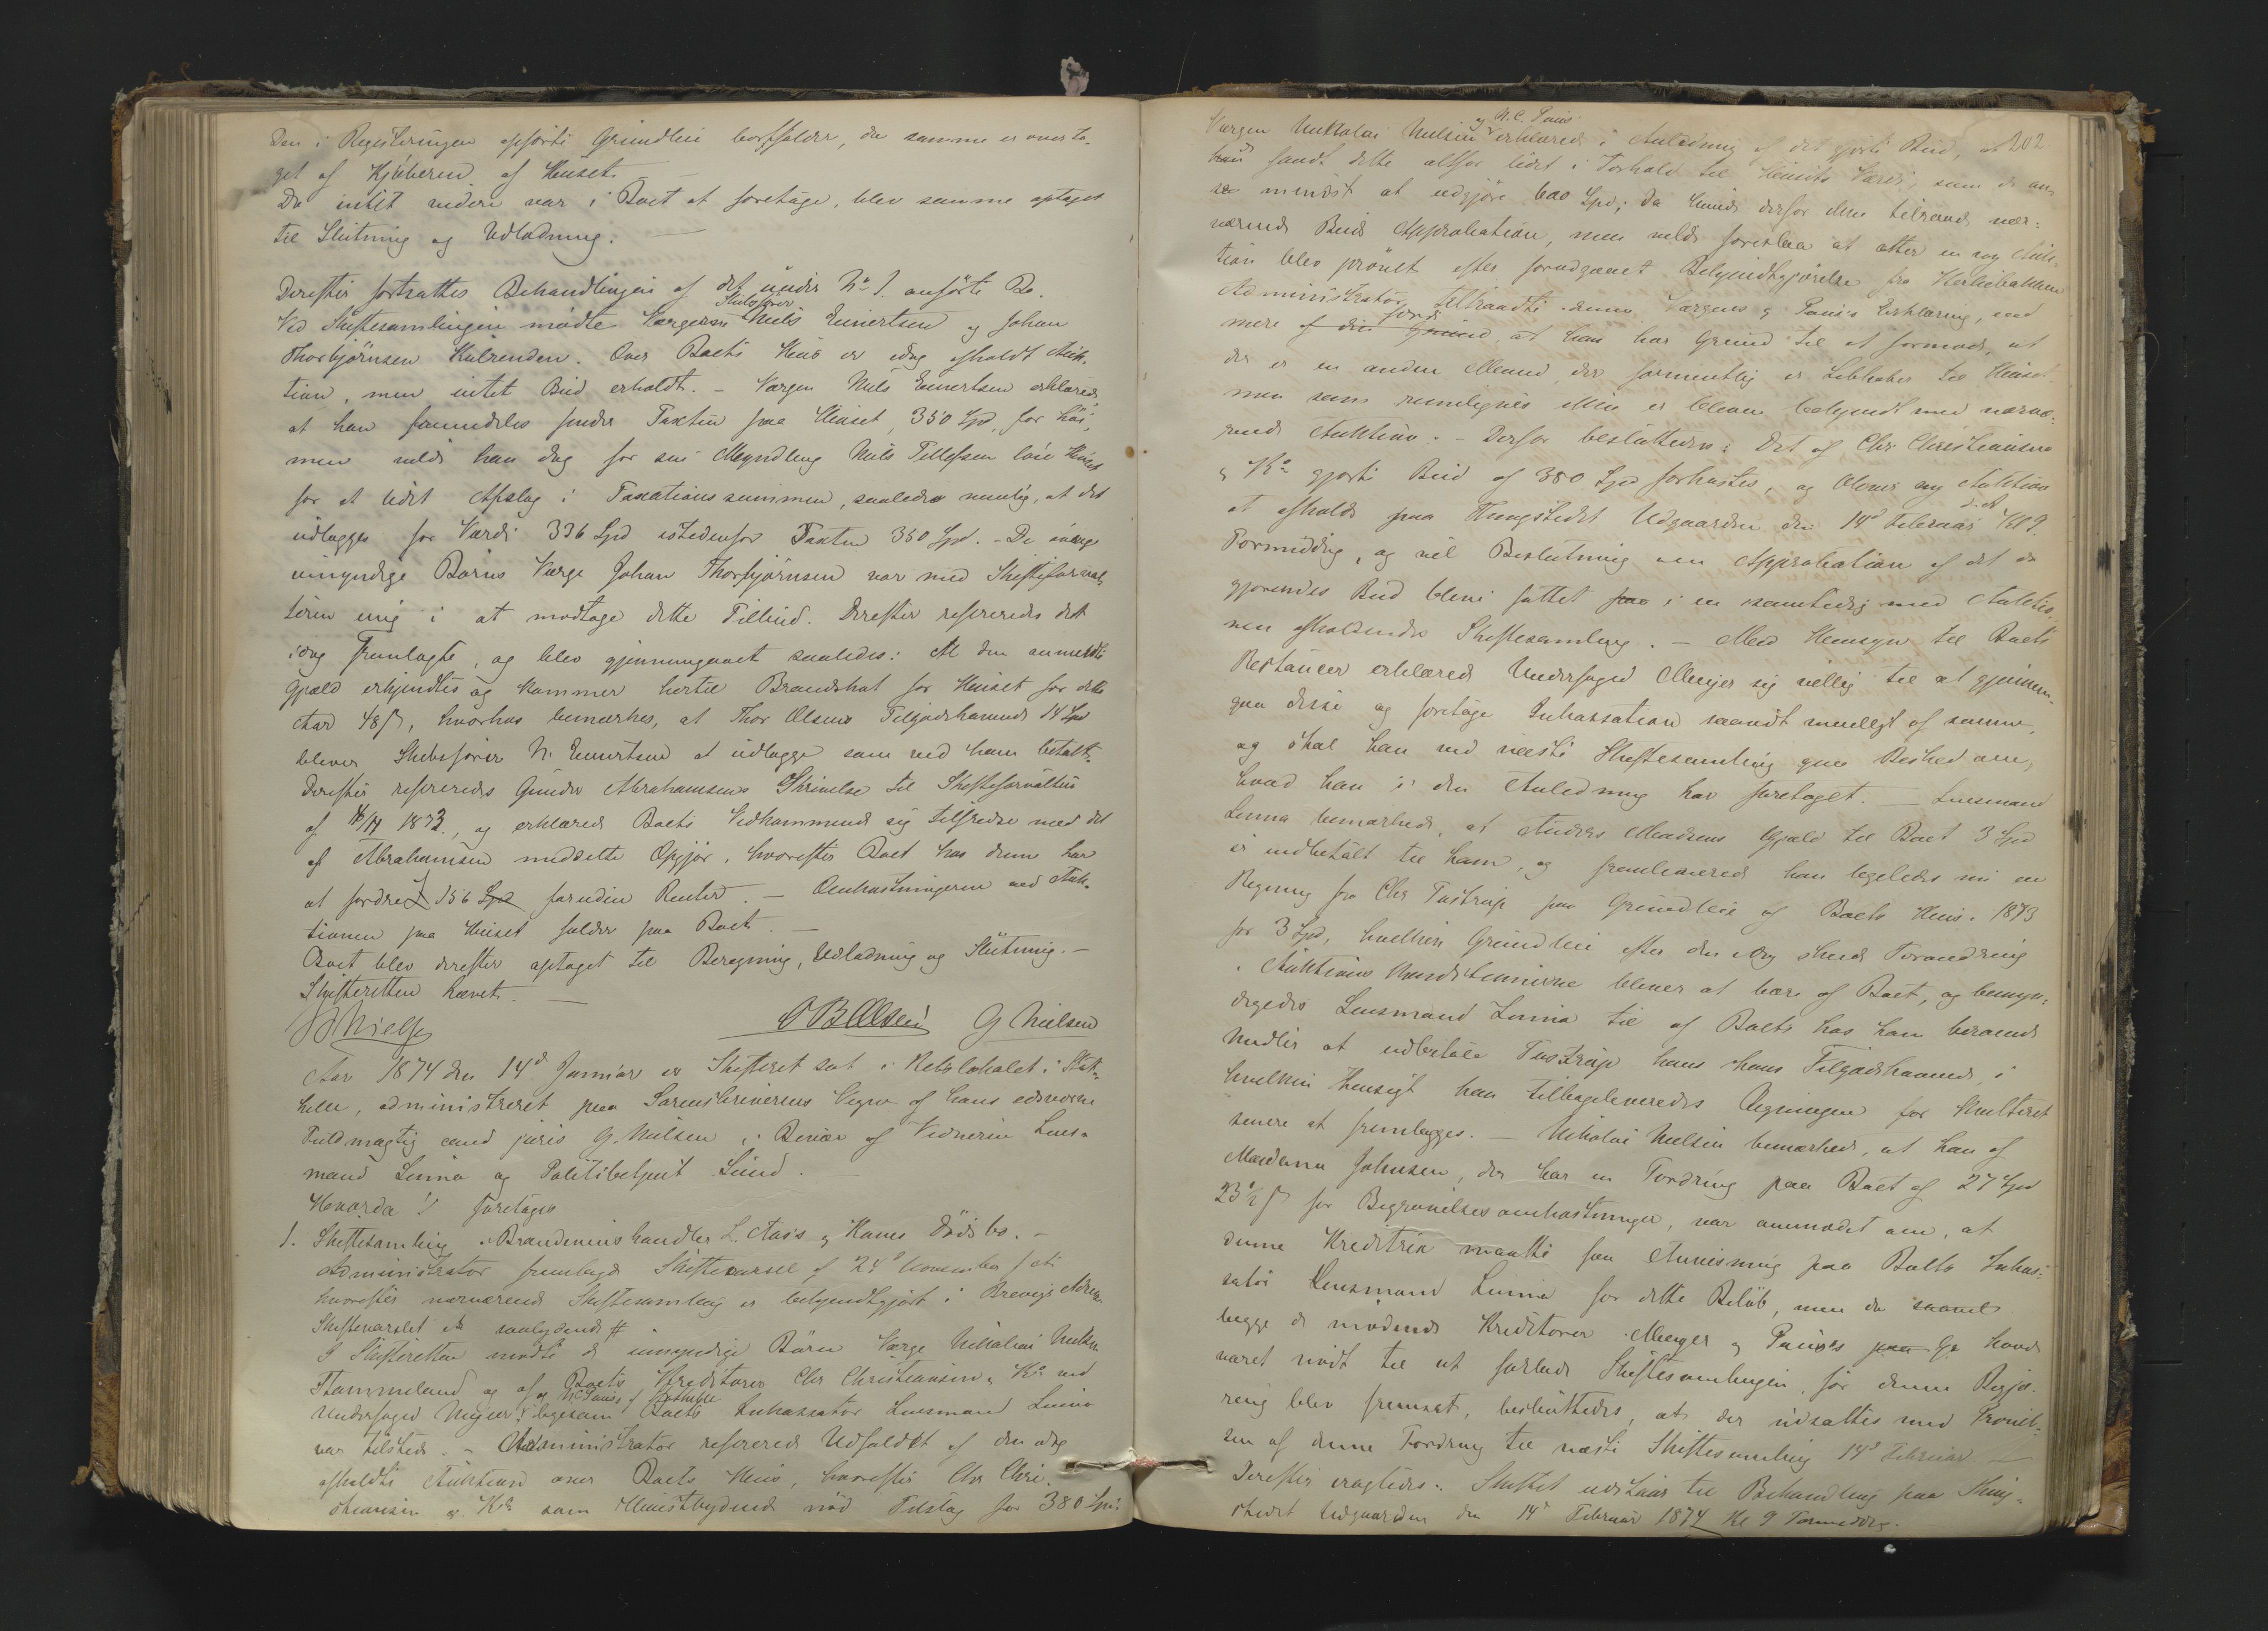 Den i Registeringen opførte Grundleie bortfalder, da samme er overta-
get af Kjøberen af Huset. —
Da intet videre var i Boet at foretage, blev samme optaget
til Slutning og Udlodning. —
Derefter fortsattes Behandlingen af det under No 1. anførte Bo.
Ved Skiftesamlingen mødte Værgerne Skibsfører Niels Evertsen og Johan
Thorbjørnsen Kulrenden. Over Boets Huus er idag afholdt Auk-
tion, men intet Bud erholdt. – Værgen Niels Evertsen erklærede
at han fremdeles finder Taxten paa Huset, 350 Spd, for høi,
men vilde han dog for sin Myndling Niels Tellefsen løse Huset
for et lidet Afslag i Taxationssummen, saaledes nemlig, at det
udlægges for Værdi 336 Spd istedenfor Taxten 350 Spd. – De øvrige
umyndige Børns Værge Johan Thorbjørnsen var med Skifteforval-
teren enig i at modtage dette Tilbud. Derefter refereredes det
idag Fremlagte, og blev gjennemgaaet saaledes: Al den anmeldte
Gjæld erkjendtes og kommer hertil Brandskat for Huset for dette
Aar 48 ß, hvorhos bemærkes, at Thor Olsens Tilgodehavende 14 Spd
bliver Skibsfører N. Evertsen at udlægge som ved ham betalt.
Derefter refereredes Gunder Abrahamsens Skrivelse til Skifteforvalteren
af 1873, og erklærede Boets Vedkommende sig tilfredse med det
af Abrahamsen medsatte Opgjør, hvorefter Boet hos denne har
at fordre 156 Spd foruden Renter. – Omkostningerne ved Auk-
tionen paa Huset falder paa Boet. —
Boet blev derefter optaget til Beregning, Udlodning og Slutning. –
Skifteretten hævet. —
OB Olsen G Nielsen
Aar 1874 den 14d Januar er Skifteret sat i Retslokalet i Stat-
helle, administreret paa Sorenskriverens Vegne af hans edsvorne
Fuldmægtig cand juris G. Nielsen, i Overvær af Vidnerne Lens-
mand Linna og Politibetjent Lund.
Hvorda! foretages
1. Skiftesamling i Brændevinshandler L. Aas's og Kones Dødsbo. –
Administrator fremlagde Skiftevarsel af 24d November f. A.
hvorefter nærværende Skiftesamling er bekjendtgjort i Brevigs Adresse.
Skiftevarslet er saalydende #
I Skifteretten mødte de umyndige Børns Værge Nikolai Nielsen
Stammeland og af Boets Kreditorer Chr Christiansen & Ko ved
Underfoged Meyer, og N.C. Paus af Stathelle ligesom Boets Inkassator Lensmand Linna
var tilstede. – Administrator refererede Udfaldet af den idag
afholdte Auktion over Boets Huus, hvorefter Chr Chri-
stiansen & Ko som Høistbydende nød Tilslag for 380 Spd:
202.
Værgen Nikolai Nielsen og N.C. Paus erklærede i Anledning af det gjorte Bud, at
han fandt dette altfor lidet i Forhold til Husets Værdi, som de an-
se mindst at udgjøre 600 Spd; de kunde derfor ikke tilraade nær-
værende Buds Approbation, men vilde foreslaa at atter en ny Auk-
tion blev prøvet efter forudgaaet Bekjendtgjørelse fra Kirkebakken
Administrator tiltraadte denne Værgens og Paus's Erklæring, end
mere af den Grund fordi, at han har Grund til at formode, at
der er en anden Mand der formentlig er Liebhaber til Huset
men som rimeligvis ikke er bleven bekjendt med nærvæ-
rende Auktion. – Derfor besluttedes: Det af Chr Christiansen
& Ko gjorte Bud af 380 Spd forkastes, og bliver ny Auktion
at afholde paa Thingstedet Udgaarden den 14d Februar d. A. Kl 9
Formiddag, og vil Beslutning om Approbation af det da
gjørendes Bud blive fattet paa i en samtidig med Auktio-
nen afholdendes Skiftesamling. – Med Hensyn til Boets
Restancer erklærede Underfoged Meyer sig villig til at gjennem-
gaa disse og foretage Inkassation saavidt muligt af samme,
og skal han ved næste Skiftesamling give Besked om,
hvad han i den Anledning har foretaget. – Lensmand
Linna bemærkede, at Anders Madsens Gjæld til Boet 3 Spd
er indbetalt til ham, og fremleverede han ligeledes nu en
Regning fra Chr Tostrup paa Grundleie af Boets Huus i 1873
for 3 Spd, hvilken Grundleie efter den idag skede Forandring
i Auktionskonditionerne bliver at bære af Boet, og bemyn-
digedes Lensmand Linna til af Boets hos ham beroende
Midler at udbetale Tostrup hans Tilgodehavende, i
hvilken Hensigt han tilbageleveredes Regningen for kvitteret
senere at fremlægges. – Nikolai Nielsen bemærkede, at han af
Madame Johnsen, der har en Fordring paa Boet af 27 Spd
23½ ß for Begravelsesomkostninger, var anmodet om, at
denne Kreditrix maatte faa Anvisning paa Boets Inkas-
sator Lensmand Linna for dette Beløb, men da saavel
begge de mødende Kreditorer Meyer og Paus havde
været nødt til at forlade Skiftesamlingen, før denne Begjæ-
ring blev fremsat, besluttedes, at der udsattes med Prøvel-
sen af denne Fordring til næste Skiftesamling 14d Februar. —
Derefter eragtedes: Skiftet udstaar til Behandling paa Thing-
stedet Udgaarden den 14d Februar 1874 Kl 9 Formiddag.